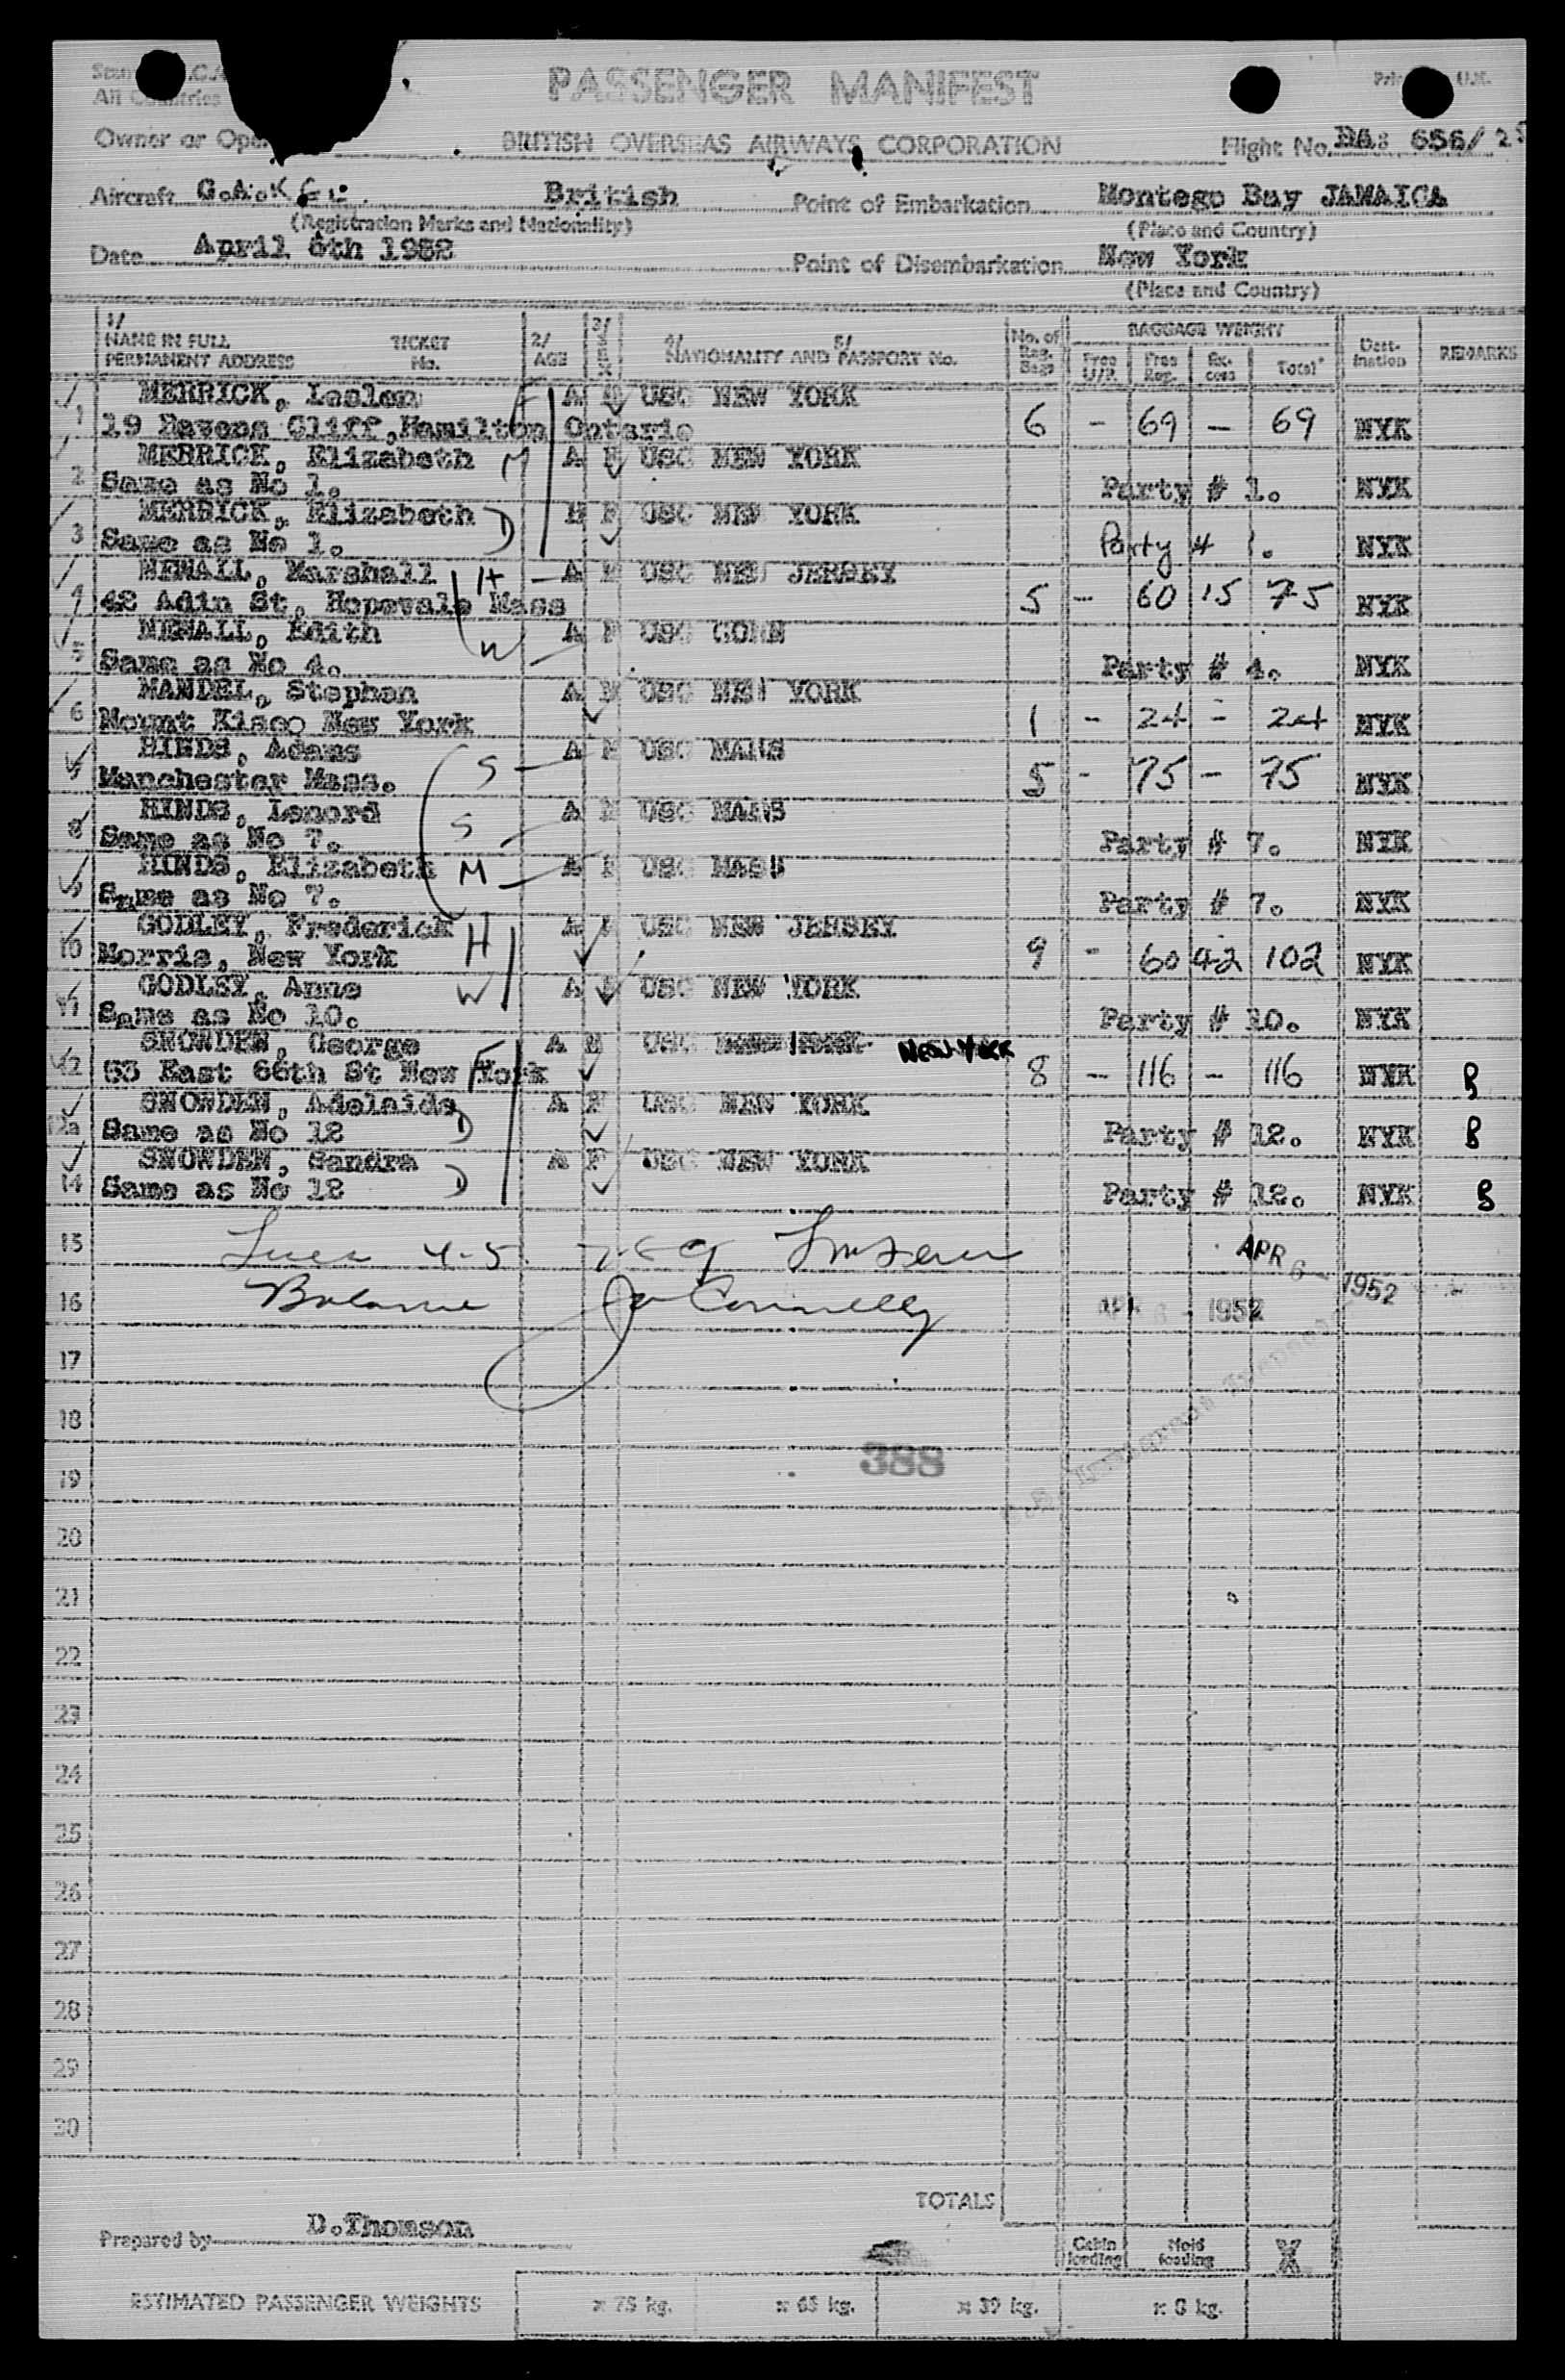 PASSENGER MANIFEST
All Countries
U.K.
Owner or
BRITISH OVERSEAS AIRWAYS CORPORATION
Flight No. BA: 656/
Aircraft G.A.K
British
Point of Embarkation Montego Bay JAMAICA
(Registration Marks and Nationality)
(Place and Country)
Date April 6th 1952
Point of Disembarkation New York
(Place and Country)
1/ NAME IN FULL PERMANENT ADDRESS TICKET No. 2/ AGE 3/ SEX 4/ 5/ NATIONALITY AND PASSPORT No. No. of Reg. Bags BAGGAGE WEIGHT Free U/R. Free Reg. Ex-cess Total Dest-ination REMARKS
MERRICK, F A USC NEW YORK
1 19 Ravens Cliff, Hamilton Ontario 6 - 69 - 69 NYK
MERRICK, Elizabeth M A F USC NEW YORK
2 Same as No 1. Party # 1. NYK
MERRICK, Elizabeth D F USC NEW YORK
3 Same as No 1. Party # 1. NYK
NEWALL, Marshall H A USC NEW JERSEY
4 42 Adin St, Hopevale Mass 5 - 60 15 75 NYK
NEWALL, Edith W A F USC CONN
5 Same as No 4. Party # 4. NYK
MANDEL, Stephen A M USC NEW YORK
6 Mount Kisco New York 1 - 24 - 24 NYK
HINDS, Adams S A USC MANS
Manchester Mass. 5 - 75 - 75 NYK
HINDS, Lenord S A USC MANS
8 Same as No 7. Party # 7. NYK
HINDS, Elizabeth M A F USC MASS
Same as No 7. Party # 7. NYK
GODLEY, Frederick H A USC NEW JERSEY
10 Morris, New York 9 - 60 42 102 NYK
GODLEY, Anne W A USC NEW YORK
11 Same as No 10. Party # 10. NYK
SNOWDEN, George F A M USC NEW YORK
12 53 East 66th St New York 8 - 116 - 116 NYK B
SNOWDEN, Adelaide D A F USC NEW YORK
12a Same as No 12 Party # 12. NYK B
SNOWDEN, Sandra D A F USC NEW YORK
14 Same as No 12 Party # 12. NYK B
15 4-5 APR 6 - 1952
16 Balance Connelly APR 6 - 1952
17
18
388
19
20
21
22
23
24
25
26
27
28
29
30
TOTALS
Prepared by D.Thomson
Cabin loading Hold loading
ESTIMATED PASSENGER WEIGHTS x 75 kg. x 65 kg. x 39 kg. x 8 kg.